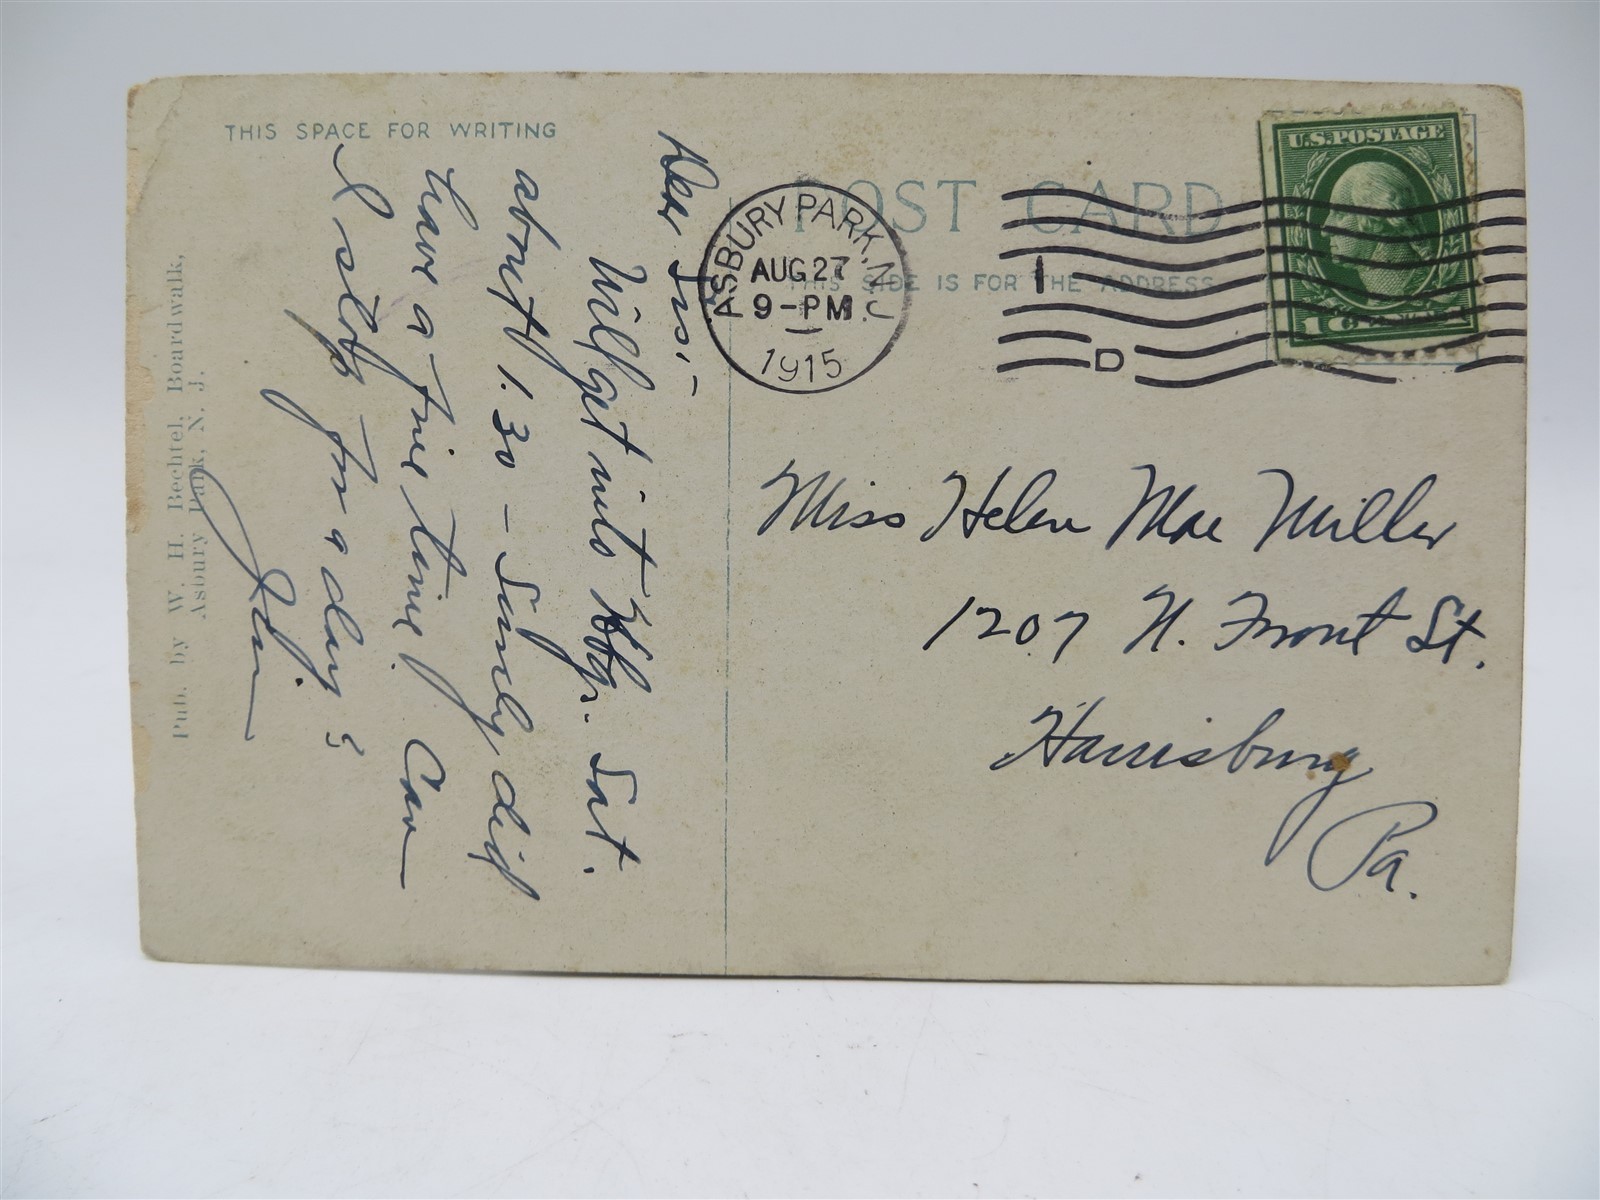 THIS SPACE FOR WRITING
POST CARD
THIS SIDE IS FOR THE ADDRESS
ASBURY PARK, N.J.
AUG 27
9-PM
1915
1
D
U.S. POSTAGE
1
Dear Sis:-
Will get into Hbg. Sat.
about 1.30 - Simply did
have a fine time. Can
I stop for a day?
John
Miss Helen Mae Miller
1207 N. Front St.
Harrisburg
Pa.
Pub. by W. H. Bechtel, Boardwalk,
Asbury Park, N. J.